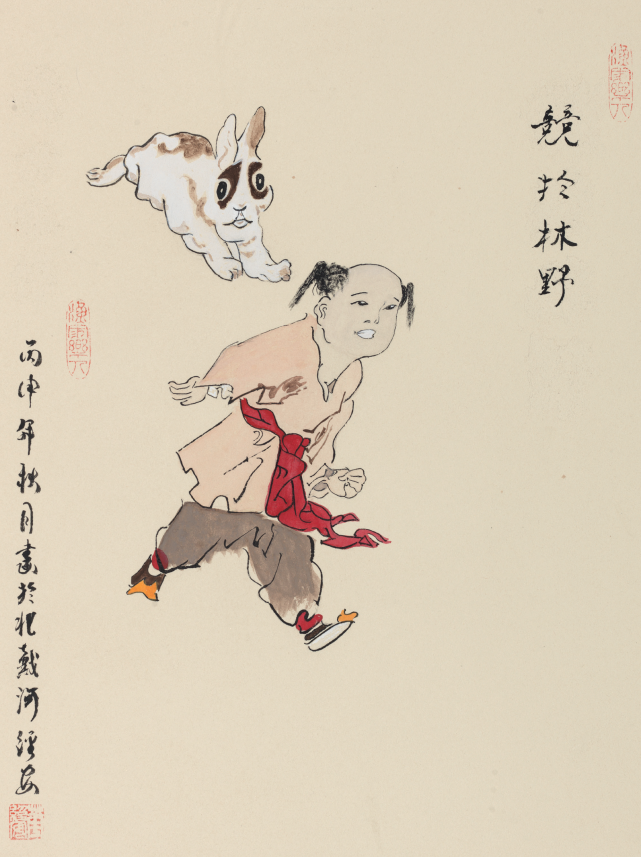 競於林野
丙申年秋月畫於北戴河經安